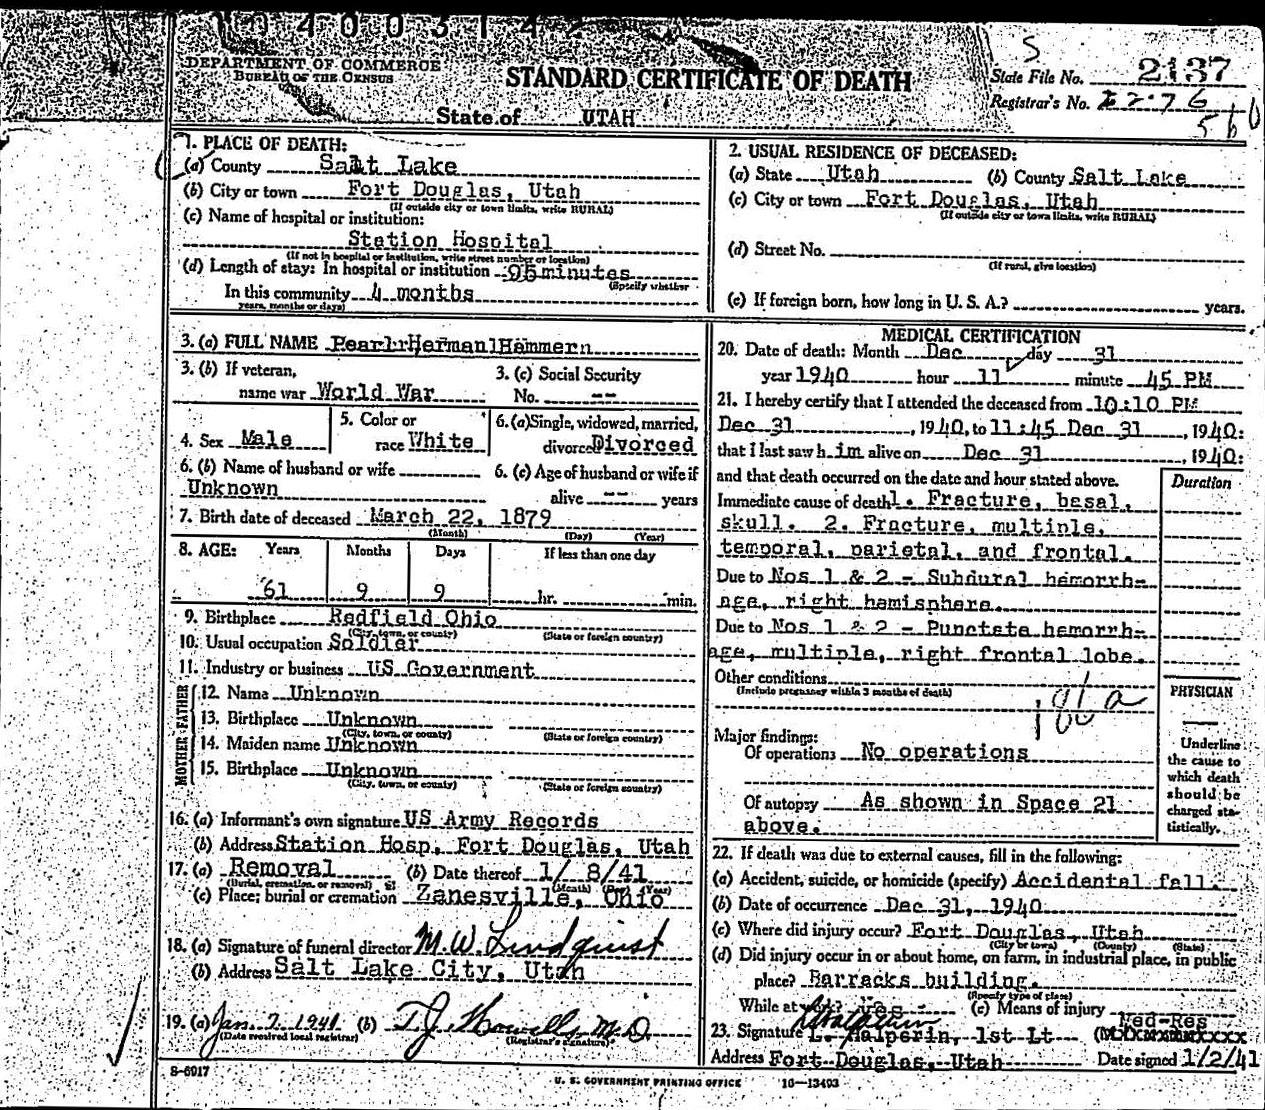 04003142
DEPARTMENT OF COMMERCE
BUREAU OF THE CENSUS
STANDARD CERTIFICATE OF DEATH
State of UTAH
S
State File No. 2137
Registrar's No. 2276
560
1. PLACE OF DEATH:
(a) County Salt Lake
(b) City or town Fort Douglas, Utah
(If outside city or town limits, write RURAL)
(c) Name of hospital or institution:
Station Hospital
(If not in hospital or institution, write street number or location)
(d) Length of stay: In hospital or institution 95 minutes
(Specify whether
In this community 4 months
years, months or days)
2. USUAL RESIDENCE OF DECEASED:
(a) State Utah (b) County Salt Lake
(c) City or town Fort Douglas, Utah
(If outside city or town limits, write RURAL)
(d) Street No.
(If rural, give location)
(e) If foreign born, how long in U. S. A.? years.
3. (a) FULL NAME Pearl Herman Hammern
3. (b) If veteran,
name war World War
3. (c) Social Security
No. --
4. Sex Male
5. Color or
race White
6. (a) Single, widowed, married,
divorced Divorced
6. (b) Name of husband or wife
Unknown
6. (c) Age of husband or wife if
alive -- years
7. Birth date of deceased March 22, 1879
(Month) (Day) (Year)
8. AGE: Years Months Days If less than one day
61 9 9 hr. min.
9. Birthplace Redfield Ohio
(City, town, or county) (State or foreign country)
10. Usual occupation Soldier
11. Industry or business US Government
FATHER
12. Name Unknown
13. Birthplace Unknown
(City, town, or county) (State or foreign country)
MOTHER
14. Maiden name Unknown
15. Birthplace Unknown
(City, town, or county) (State or foreign country)
16. (a) Informant's own signature US Army Records
(b) Address Station Hosp, Fort Douglas, Utah
17. (a) Removal (b) Date thereof 1/ 8/41
(Burial, cremation, or removal) (Month) (Day) (Year)
(c) Place; burial or cremation Zanesville, Ohio
18. (a) Signature of funeral director M. W. Lindquist
(b) Address Salt Lake City, Utah
19. (a) Jan. 7. 1941 (b) T. J. Howells, M.D.
(Date received local registrar) (Registrar's signature)
MEDICAL CERTIFICATION
20. Date of death: Month Dec day 31
year 1940 hour 11 minute 45 PM
21. I hereby certify that I attended the deceased from 10:10 PM
Dec 31, 1940, to 11:45 Dec 31, 1940:
that I last saw h im alive on Dec 31, 1940:
and that death occurred on the date and hour stated above.
Duration
Immediate cause of death 1. Fracture, basal,
skull. 2. Fracture, multiple,
temporal, parietal, and frontal.
Due to Nos 1 & 2 - Subdural hemorrh-
age, right hemisphere.
Due to Nos 1 & 2 - Punctate hemorrh-
age, multiple, right frontal lobe.
Other conditions
(Include pregnancy within 3 months of death)
186 a
Major findings:
Of operations No operations
Of autopsy As shown in Space 21
above.
PHYSICIAN
Underline
the cause to
which death
should be
charged sta-
tistically.
22. If death was due to external causes, fill in the following:
(a) Accident, suicide, or homicide (specify) Accidental fall.
(b) Date of occurrence Dec 31, 1940
(c) Where did injury occur? Fort Douglas, Utah
(City or town) (County) (State)
(d) Did injury occur in or about home, on farm, in industrial place, in public
place? Barracks building.
(Specify type of place)
While at work? Yes (e) Means of injury
23. Signature L. Halperin, 1st Lt Med-Res
Address Fort Douglas, Utah Date signed 1/2/41
S-6917
U. S. GOVERNMENT PRINTING OFFICE 16-13493